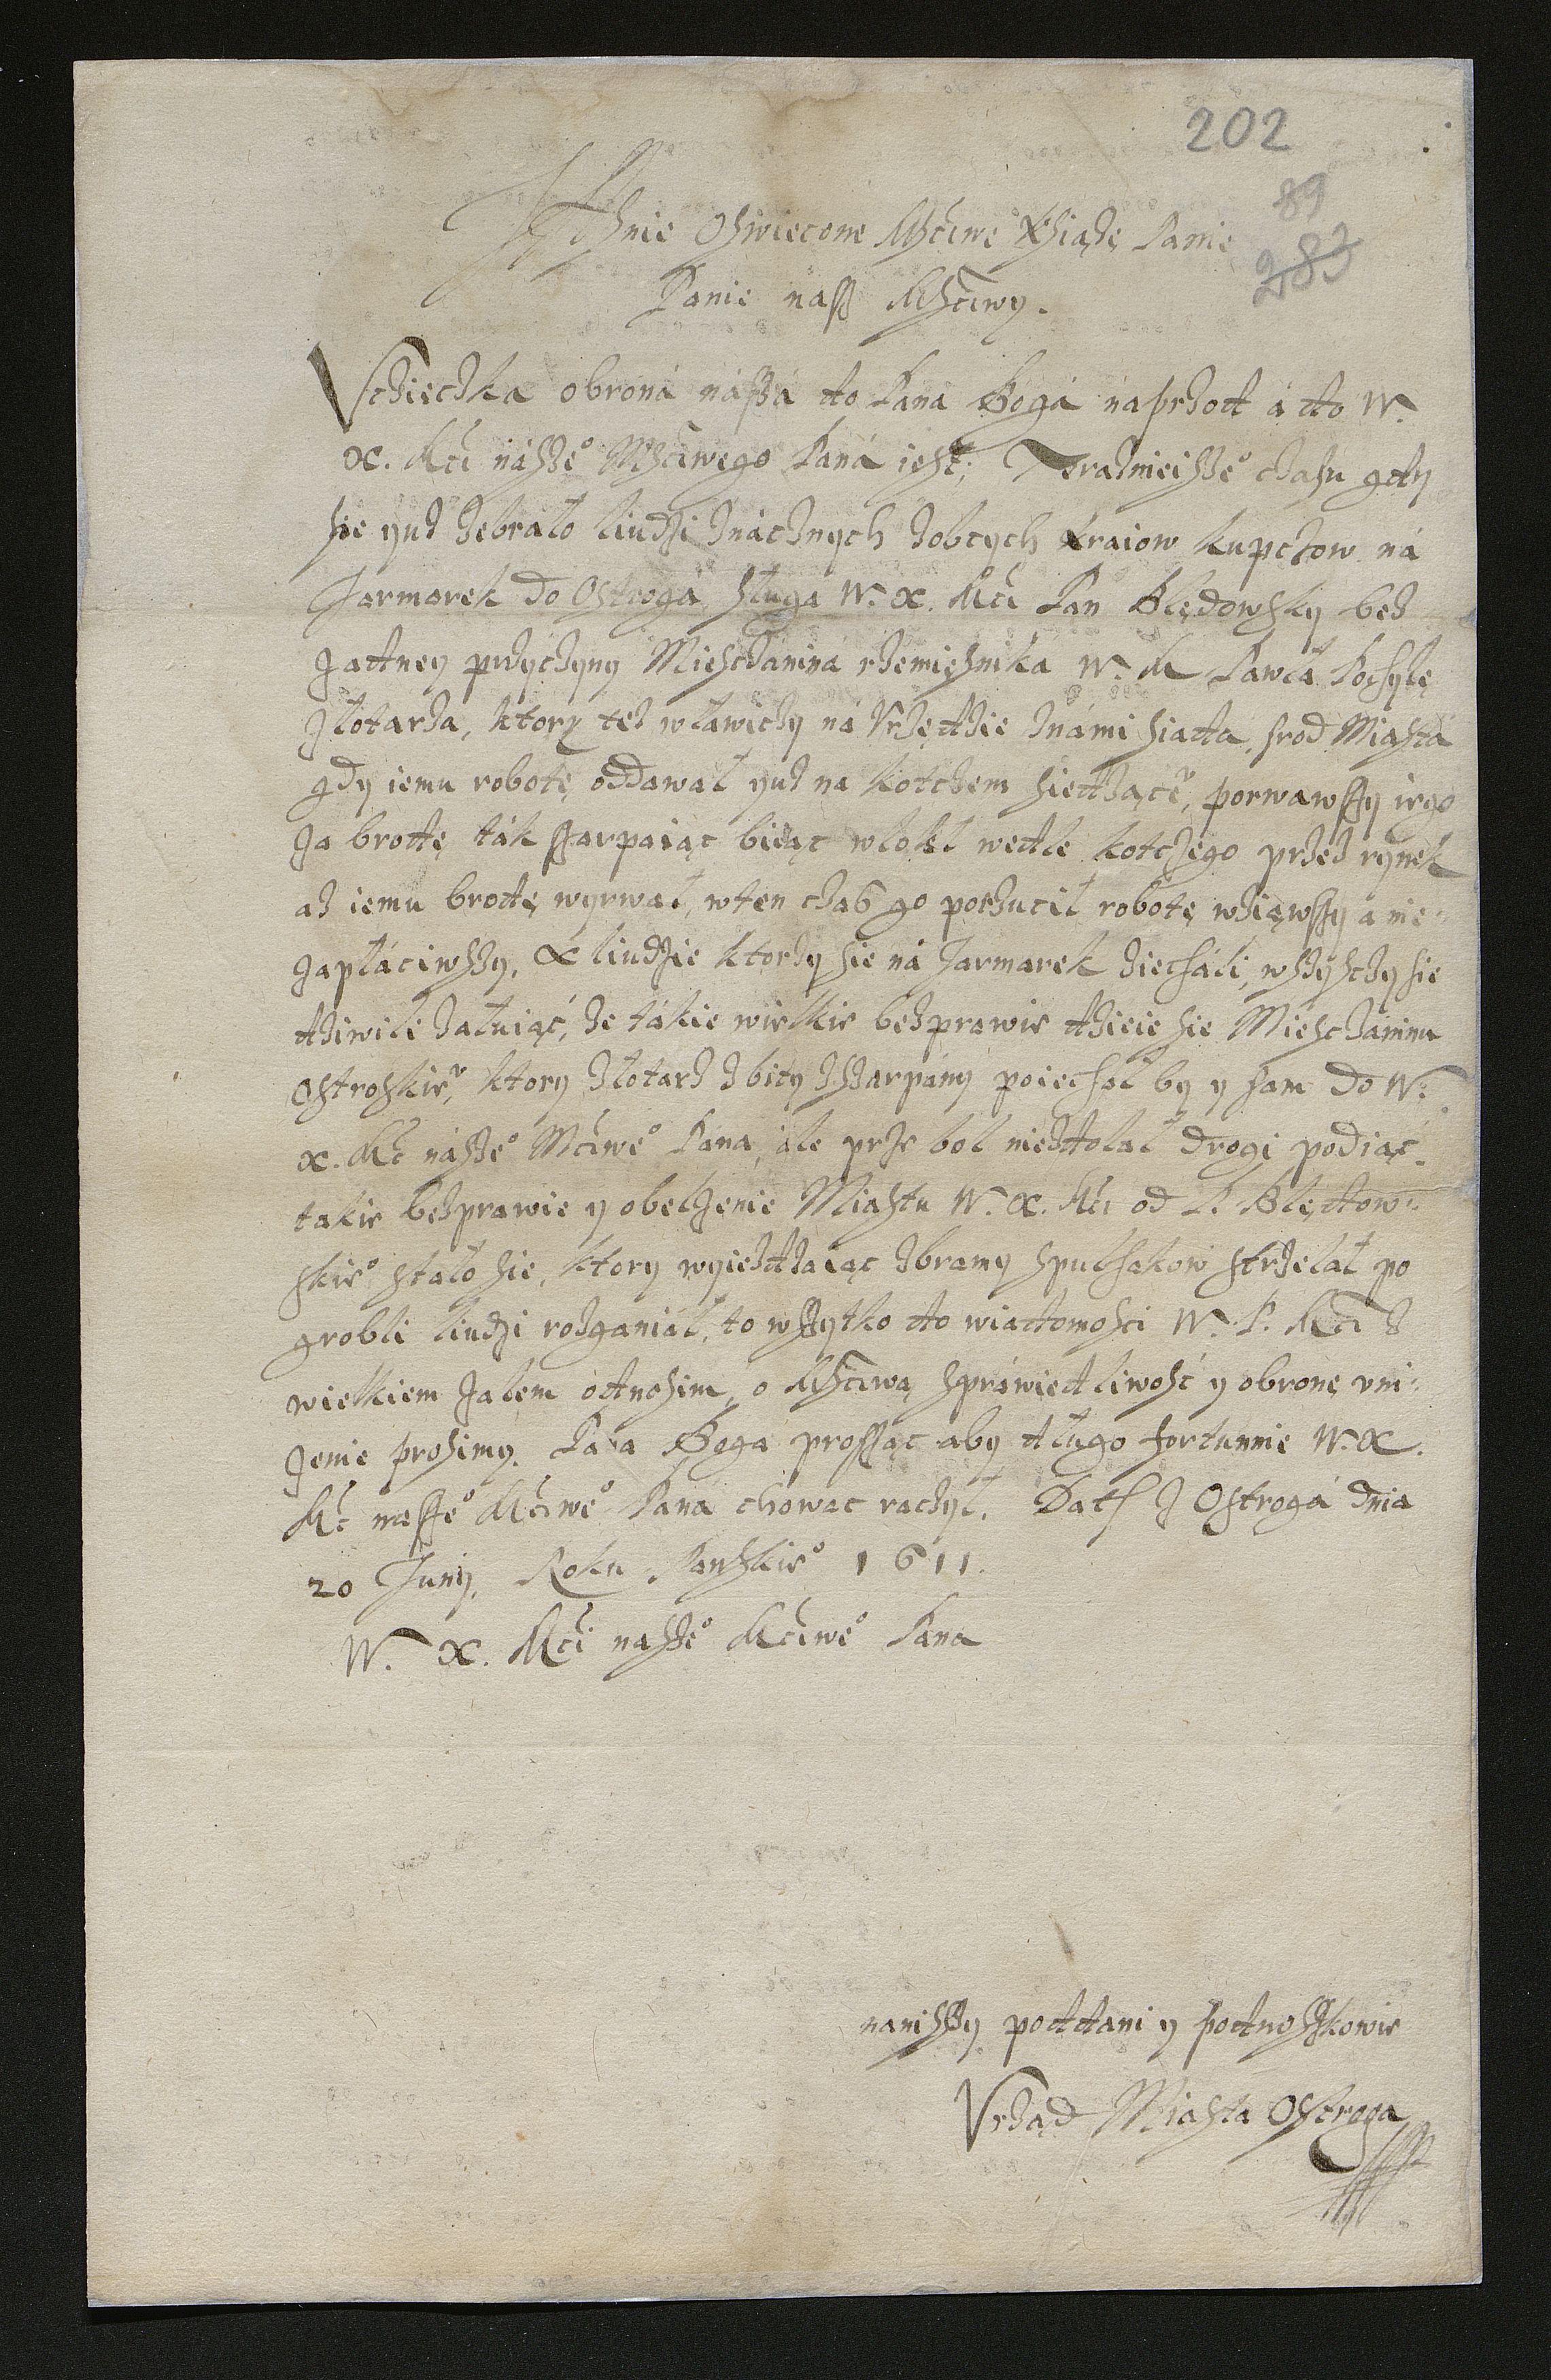 202
89
283
Jasnie Oswiecone Msciwe Xsiąże Panie
Panie nasz Msciwy.
Vcżiecżka obroná nászá do Pana Bogá naprżod á do W.
X. Mci nászeº Msciwego Paná iest; Terażnieiszeº cżasu gdy
sie yuż żebrało liudzi żnácżnych żobcych kraiow kupcżow ná
Jarmarek do Ostrogá, sługa W. X. Mci Pan Blędowsky beż
żadney prżycżyny Miescżanina rżemięsnika W. M Pawła Kosyłę
złotarża, ktory też wławicży ná Vrżędżie żnámi siada, srod Miasta
gdy iemu robotę oddawał yuż na kotcżem siedżącº, porwawszy iego
za brodę ták szarpaiąc biiąc wlokł wedle kotczego prżeż rynek
aż iemu brodę wyrwał, wten cżas go porżucił robotę wżiąwszy a nie-
zapłáciwszy. A liudzie ktorży sie ná Jarmarek żiecháli, wszyscży sie
dżiwili żałuiąć, że tákie wielkie beżprawie dżieie sie Miescżáninu
Ostroskieº, ktory żłotarż żbity ższarpány poiechał by y sam do W.
X. Mć nászeº Mciweº Pána, ále prże bol nieżdołał drogi podiąć.
takie beżprawie y obelżenie Miastu W. X. Mci od P. Blędow-
skieº stało sie, ktory wyieżdżaiąc żbramy spulhakow strżelał po
grobli liudzi rożganiał, to wszytko do wiadomosci W. X. Mci ż
wielkiem żalem odnosim, o Msciwą sprawiedliwość y obronę vni-
żenie prosimy. Pana Boga prosząc aby długo fortunnie W. X.
Mć naszeº Mciweº Pana chowac racżył. Dat ż Ostrogá dnia
20 Juny. Roku Panskieº 1611.
W. X. Mci naszeº Mciweº Pana
naniszszy poddani y podnoszkowie
Vrżąd Miasta Ostroga